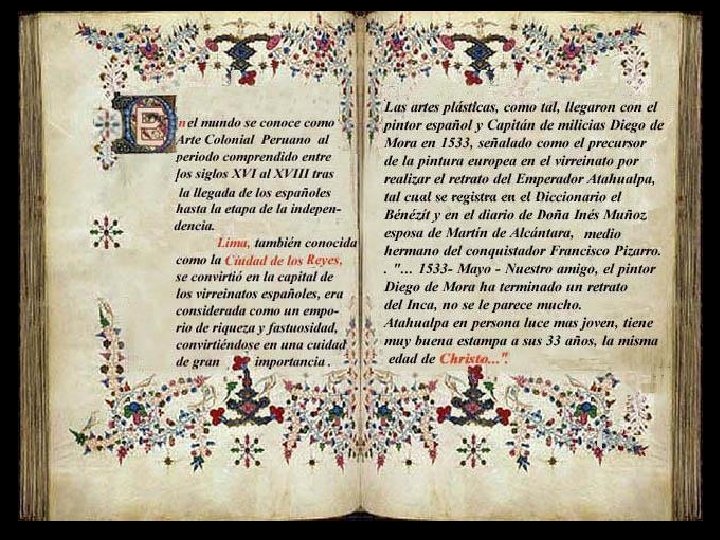 n el mundo se conoce como
Arte Colonial Peruano al
periodo comprendido entre
los siglos XVI al XVIII tras
la llegada de los españoles
hasta la etapa de la indepen-
dencia.
Lima, también conocida
como la Ciudad de los Reyes,
se convirtió en la capital de
los virreinatos españoles, era
considerada como un empo-
rio de riqueza y fastuosidad,
convirtiéndose en una cuidad
de gran importancia .
Las artes plásticas, como tal, llegaron con el
pintor español y Capitán de milicias Diego de
Mora en 1533, señalado como el precursor
de la pintura europea en el virreinato por
realizar el retrato del Emperador Atahualpa,
tal cual se registra en el Diccionario el
Bénézit y en el diario de Doña Inés Muñoz
esposa de Martín de Alcántara, medio
hermano del conquistador Francisco Pizarro.
. "... 1533- Mayo - Nuestro amigo, el pintor
Diego de Mora ha terminado un retrato
del Inca, no se le parece mucho.
Atahualpa en persona luce mas joven, tiene
muy buena estampa a sus 33 años, la misma
edad de Christo...".